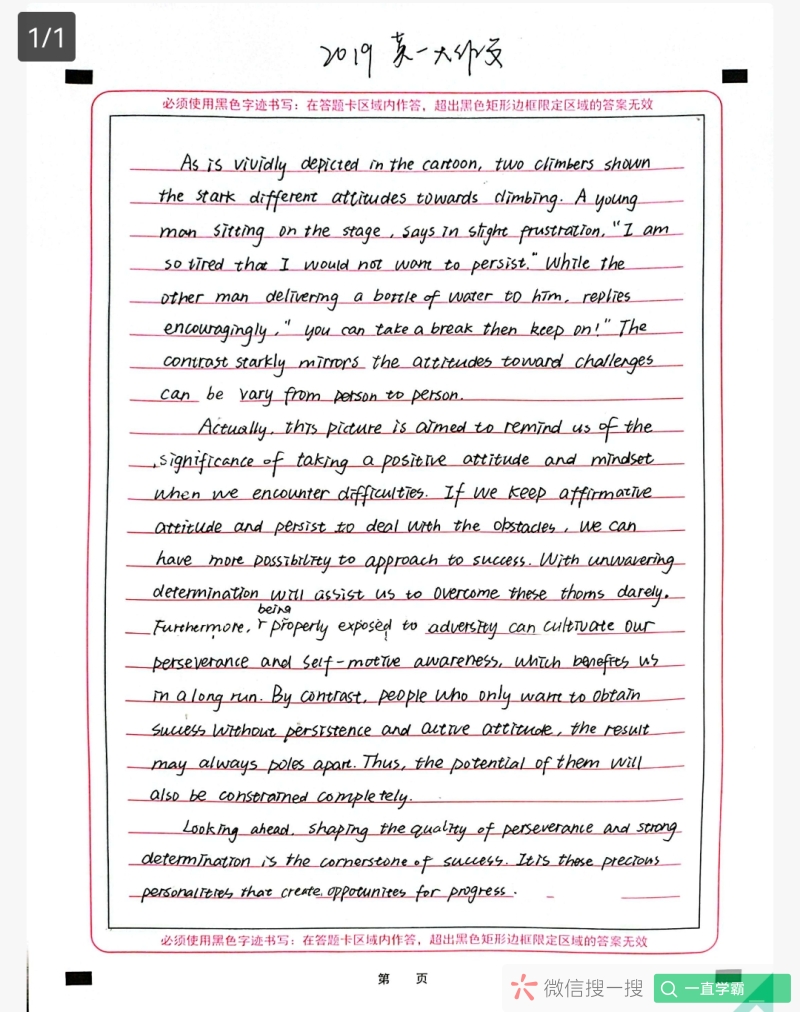 1/1
2019 英一大作文
必须使用黑色字迹书写：在答题卡区域内作答，超出黑色矩形边框限定区域的答案无效
As is vividly depicted in the cartoon, two climbers shown
the stark different attitudes towards climbing. A young
man sitting on the stage, says in slight frustration, "I am
so tired that I would not want to persist." While the
other man delivering a bottle of water to him, replies
encouragingly, "you can take a break then keep on!" The
contrast starkly mirrors the attitudes toward challenges
can be vary from person to person.
Actually, this picture is aimed to remind us of the
significance of taking a positive attitude and mindset
when we encounter difficulties. If we keep affirmative
attitude and persist to deal with the obstacles, we can
have more possibility to approach to success. With unwavering
determination will assist us to overcome these thorns darely.
Furthermore, being properly exposed to adversity can cultivate our
perseverance and self-motive awareness, which benefits us
in a long run. By contrast, people who only want to obtain
success without persistence and active attitude, the result
may always poles apart. Thus, the potential of them will
also be constrained completely.
Looking ahead, shaping the quality of perseverance and strong
determination is the cornerstone of success. It is these precious
personalities that create oppotunites for progress.
必须使用黑色字迹书写：在答题卡区域内作答，超出黑色矩形边框限定区域的答案无效
第 页
微信搜一搜 一直学霸